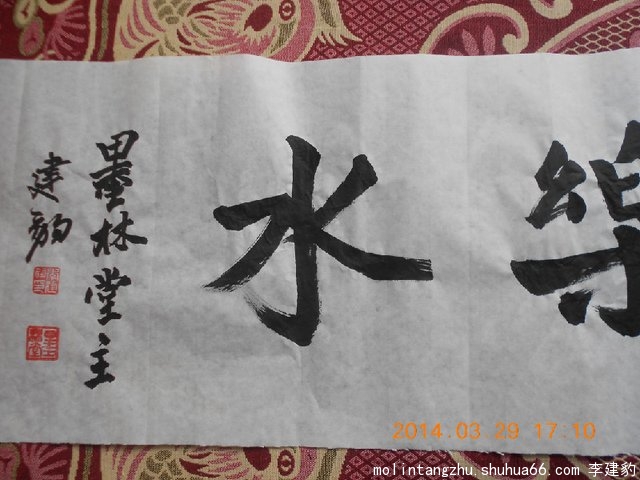 樂水
墨林堂主
建豹
2014.03.29 17:10
molintangzhu.shuhua66.com 李建豹